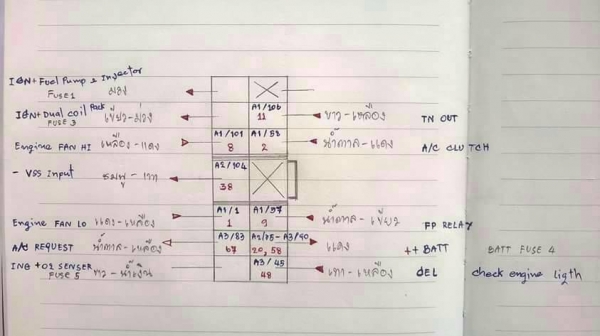 IGN+Fuel Pump & Injector
FUSE1 ม่วง
IGN+Dual coil Pack เขียว-ม่วง
FUSE 3
A1/106
11 ขาว-เหลือง TN OUT
Engine FAN HI เหลือง-แดง A1/101 A1/53 น้ำตาล-แดง A/C CLUTCH
8 2
- VSS Input ชมพู-เทา A2/104
38
Engine FAN LO แดง-เหลือง A1/1 A1/97 น้ำตาล-เขียว FP RELAY
1 9
A/C REQUEST น้ำตาล-เหลือง A3/83 แดง ++ BATT BATT FUSE 4
67 20, 58
ING +O2 SENSER
FUSE 5 A3/45 เทา-เหลือง DEL check engine ligth
48